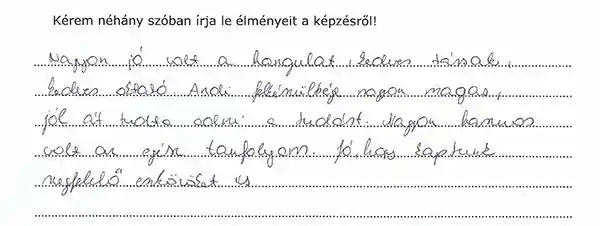 Kérem néhány szóban írja le élményeit a képzésről!
Nagyon jó volt a hangulat, kedves társak,
kedves oktató Andi felkészültsége nagyon magas,
jól át tudta adni a tudást. Nagyon hasznos
volt az egész tanfolyam. Jó, hogy kaptunk
megfelelő eszközöket is